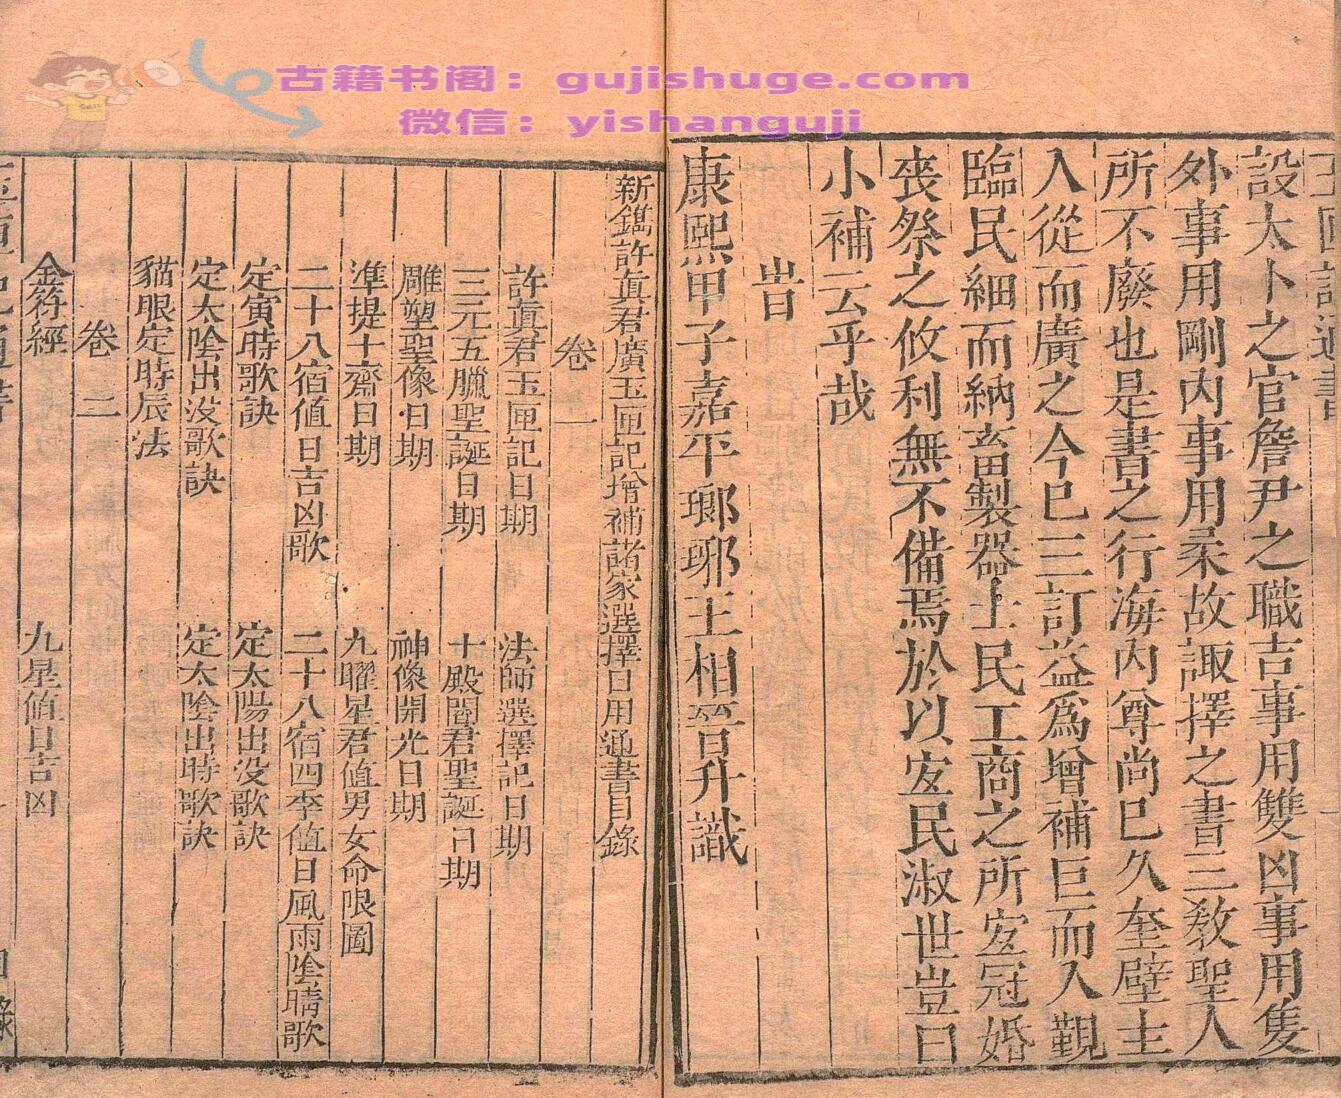 古籍书阁：gujishuge.com
微信：yishanguji
設太卜之官詹尹之職吉事用雙凶事用隻
外事用剛內事用柔故諏擇之書三教聖人
所不廢也是書之行海內尊尚已久奎壁主
人從而廣之今已三訂益為增補巨而入覲
臨民細而納畜製器士民工商之所宜冠婚
喪祭之攸利無不備焉於以宜民淑世豈曰
小補云乎哉
旹
康熙甲子嘉平瑯琊王相晉升識
新鐫許真君廣玉匣記增補諸家選擇日用通書目錄
卷一
許真君玉匣記日期 法師選擇記日期
三元五臘聖誕日期 十殿閻君聖誕日期
雕塑聖像日期 神像開光日期
準提十齋日期 九曜星君值男女命限圖
二十八宿值日吉凶歌 二十八宿四季值日風雨陰晴歌
定寅時歌訣 定太陽出没歌訣
定太陰出没歌訣 定太陰出時歌訣
貓眼定時辰法
卷二
金符經 九星值日吉凶